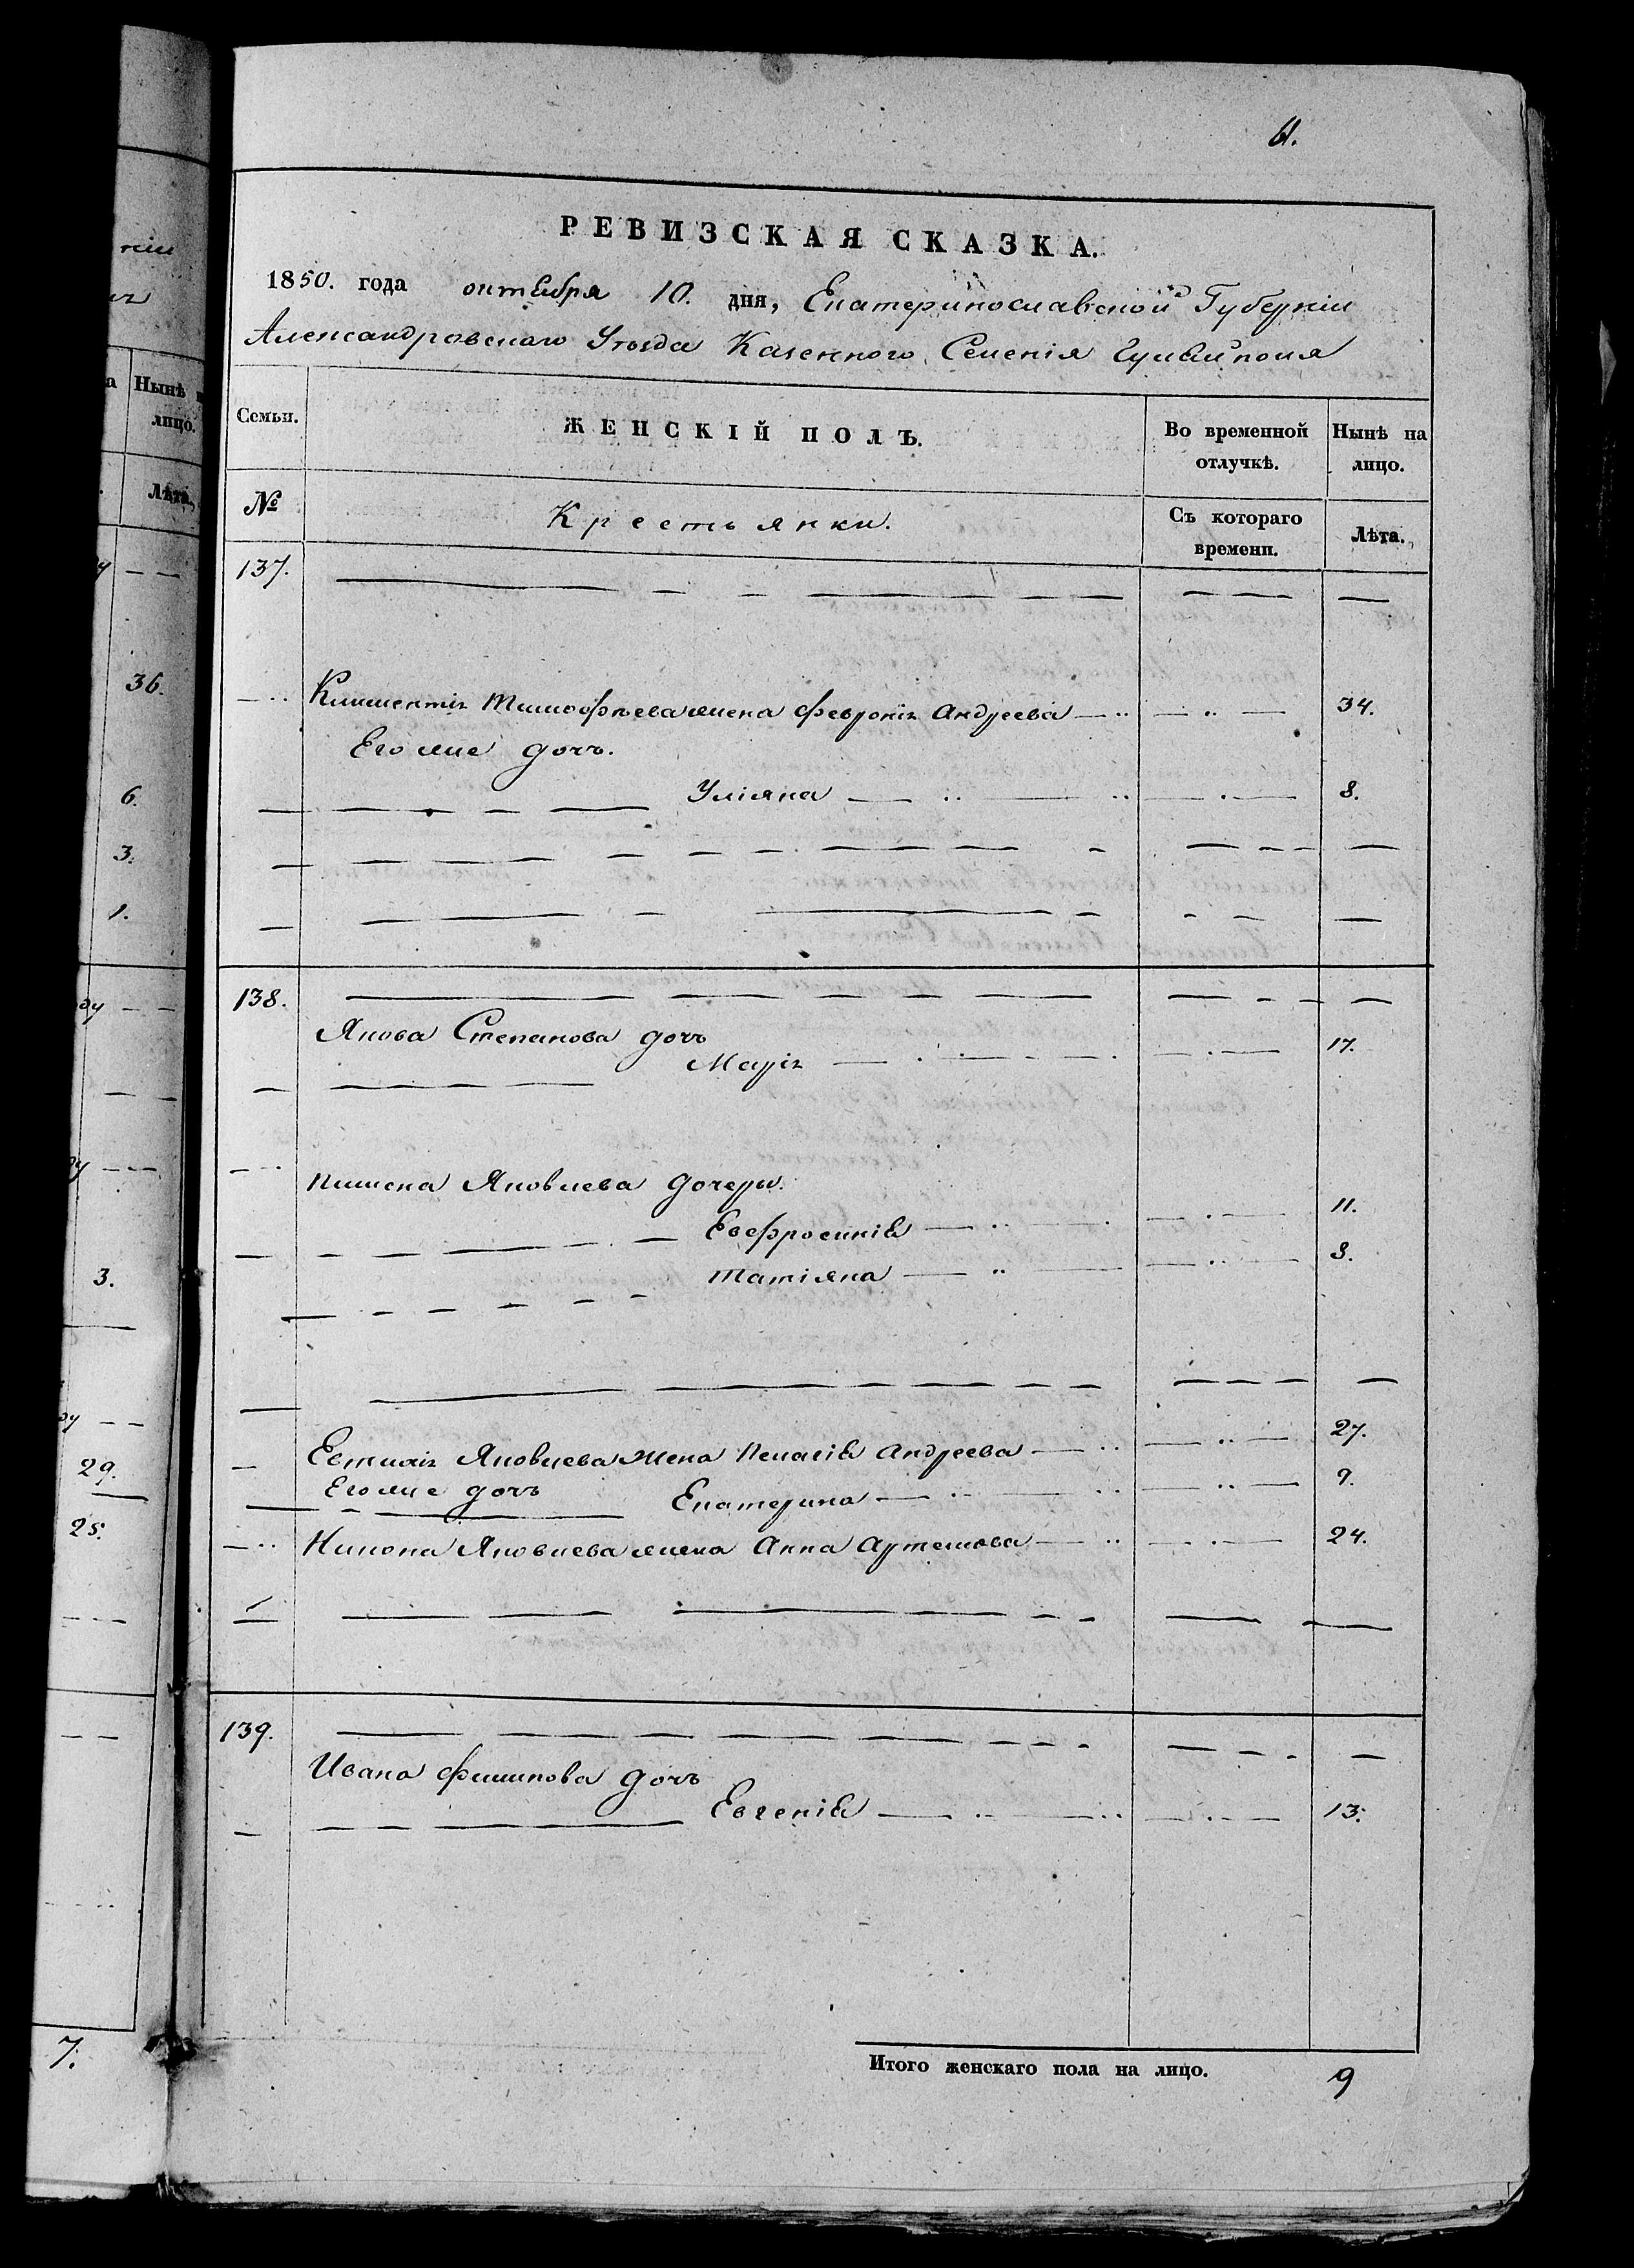 61.
РЕВИЗСКАЯ СКАЗКА.
1850. года октября 10. дня, Екатеринославской Губерніи
Александровскаго Уѣзда Казенного Селенія Гуляйполя
Семьи.
ЖЕНСКІЙ ПОЛЪ.
Во временной отлучкѣ.
Нынѣ на лицо.
№
Крестьянки.
Съ котораго времени.
Лѣта.
137.
Климентія Тимофѣева жена Февронія Андреева 34.
Его же дочь.
Уліяна 8.
138.
Якова Степанова дочь
Марія 17.
Яковлева дочери.
Евфросинія 11.
Татіяна 8.
Евтихія Яковлева жена Пелагія Андреева 27.
Его же дочь Екатерина 9.
Никона Яковлева жена Анна Артемова 24.
139.
Ивана Филипова дочь
Евгенія 13.
Итого женскаго пола на лицо. 9
Нынѣ
лицо.
Лѣта
36.
6.
3.
1.
3.
29.
25.
7.